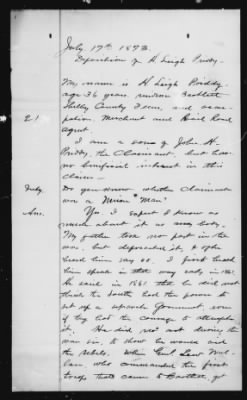 July 17th 1873.
Deposition of H Leigh Priddy.
My name is H Leigh Priddy
age 36 years, residence Bartlett
Shelby County Tenn, and occu-
pation, Merchant and Rail Road
agent.
2.1
I am a son of John H.
Priddy, the Claimant, but has
no beneficial interest in this
claim.
Do you know whether Claimant
was a Union "Man"
Ans.
Yes. I expect I know as
much about it as any body.
My father took no part in the
war, but deprecated it, & often
heard him say so. I first heard
him speak in that way early in 1861
He said in 1861 that he did not
think the South had the power to
set up a separate Government, even
if they had the courage to attempt
it. He did not during the
war
the Rebels. When Genl Lew Wal-
lace, who commanded the first
troops that came to Bartlett, got